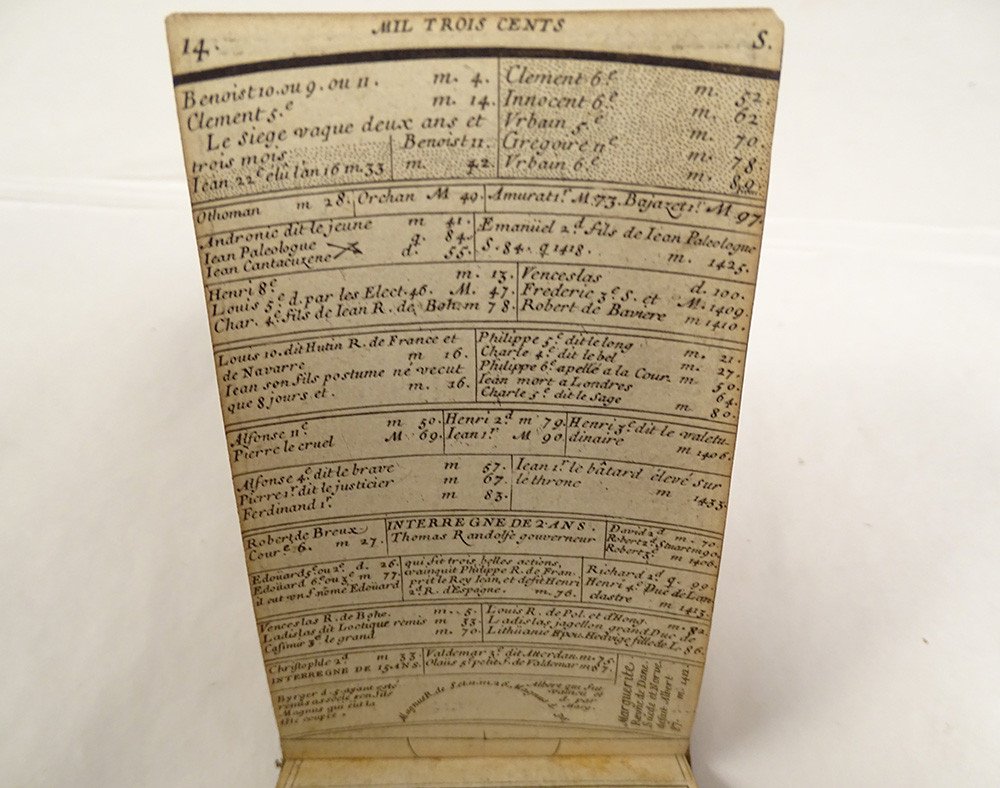 14. MIL TROIS CENTS S.
Benoist 10. ou 9. ou 11. m. 4.
Clement 5.e m. 14.
Le Siege vaque deux ans et
trois mois.
Iean 22e élu l'an 16 m. 33
Benoist 11.
m. 42
Clement 6.e m. 52.
Innocent 6.e m. 62
Vrbain 5.e m. 70
Gregoire 11e m. 78.
Vrbain 6.e m. 89.
Othoman m 28.
Orchan M 49.
Amurat 1.r M 73. Bajazet 1.r M 97.
Andronic dit le jeune m 41.
Iean Paleologue q. 84.
Iean Cantacuzene d. 55.
Emanüel 2.d fils de Iean Paleologue
S. 84. q 1418. m. 1425.
Henri 8e m. 13.
Louis 5e d. par les Elect. 46. M. 47.
Char. 4.e fils de Iean R. de Boh. m 78.
Venceslas d. 100.
Frederic 3.e S. et M. 1409.
Robert de Baviere m 1410.
Louis 10. dit Hutin R. de France et
de Navarre m 16.
Iean son fils postume né vecut
que 8 jours et. m. 16.
Philippe 5.e dit le long m. 21.
Charle 4.e dit le bel m. 27.
Philippe 6.e apellé a la Cour. m. 50.
Iean mort a Londres 64.
Charle 5.e dit le Sage m 80.
Alfonse 11e m 50.
Pierre le cruel M 69.
Henri 2.d m 79.
Iean 1.r M 90
Henri 3.e dit le valetu
dinaire m 1406.
Alfonse 4.e dit le brave m 57.
Pierre 1.r dit le justicier m 67.
Ferdinand 1.r m 83.
Iean 1.r le bâtard élevé sur
le throne m 1433.
Robert de Breux
Cour.e 6. m 27.
INTERREGNE DE 2 ANS.
Thomas Randolfe gouverneur
David 2.d m. 70
Robert 2.d Stuart m 90.
Robert 3.e m 1406.
Edouard 5.e ou 2.e d. 26.
Edoüard 6.e ou 3.e m 77.
il eut un f. nomé Edoüard
qui fit trois belles actions,
vainquit Philippe R. de Fran
prit le Roy Iean, et defit Henri
2.d R. d'Espagne. m. 76.
Richard 2.d q. 99.
Henri 4.e Duc de Lan
clastre m 1413.
Venceslas R. de Bohe. m. 5.
Ladislas dit Loctique remis m 33.
Casimir 3.e le grand m. 70.
Louis R. de Pol. et d'Hong. m. 82
Ladislas jagellon grand Duc de
Lithüanie Epou. Hedvige fille de L. 86.
Christophle 2.d m 33.
INTERREGNE DE 15 ANS.
Valdemar 3.e dit Atterdan. m. 75.
Olaüs 5.e petit f. de Valdemar m 87.
Byrger d. 5 ayant esté
remis associe son fils
Magnus qui eut la
tête coupée.
Magnus R. de
Albert qui fut
vaincu
par
Marg.
Marguerite
Reine de Dane
Suede et Norve
defait Albert
m. 1412.